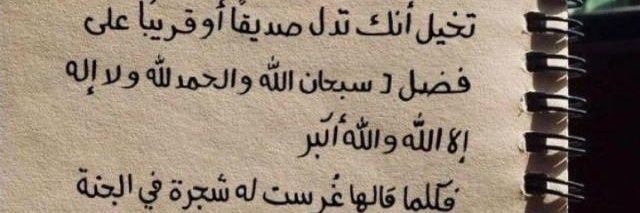 تخيل أنك تدل صديقًا أو قريبًا على
فضل [ سبحان الله والحمد لله ولا إله
إلا الله والله أكبر
فكلما قالها غُرست له شجرة في الجنة